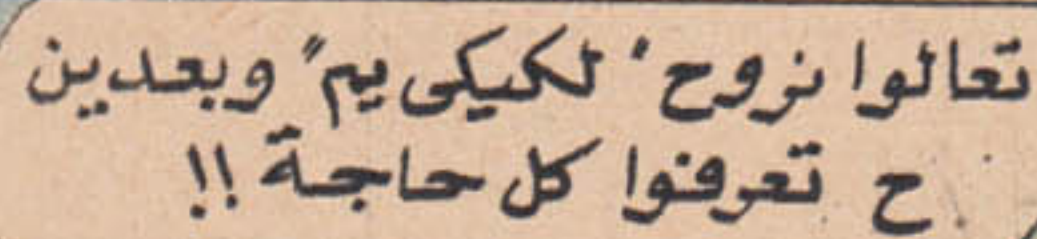 تعالوا نروح "لكيكى يم" وبعدين
ح تعرفوا كل حاجة !!